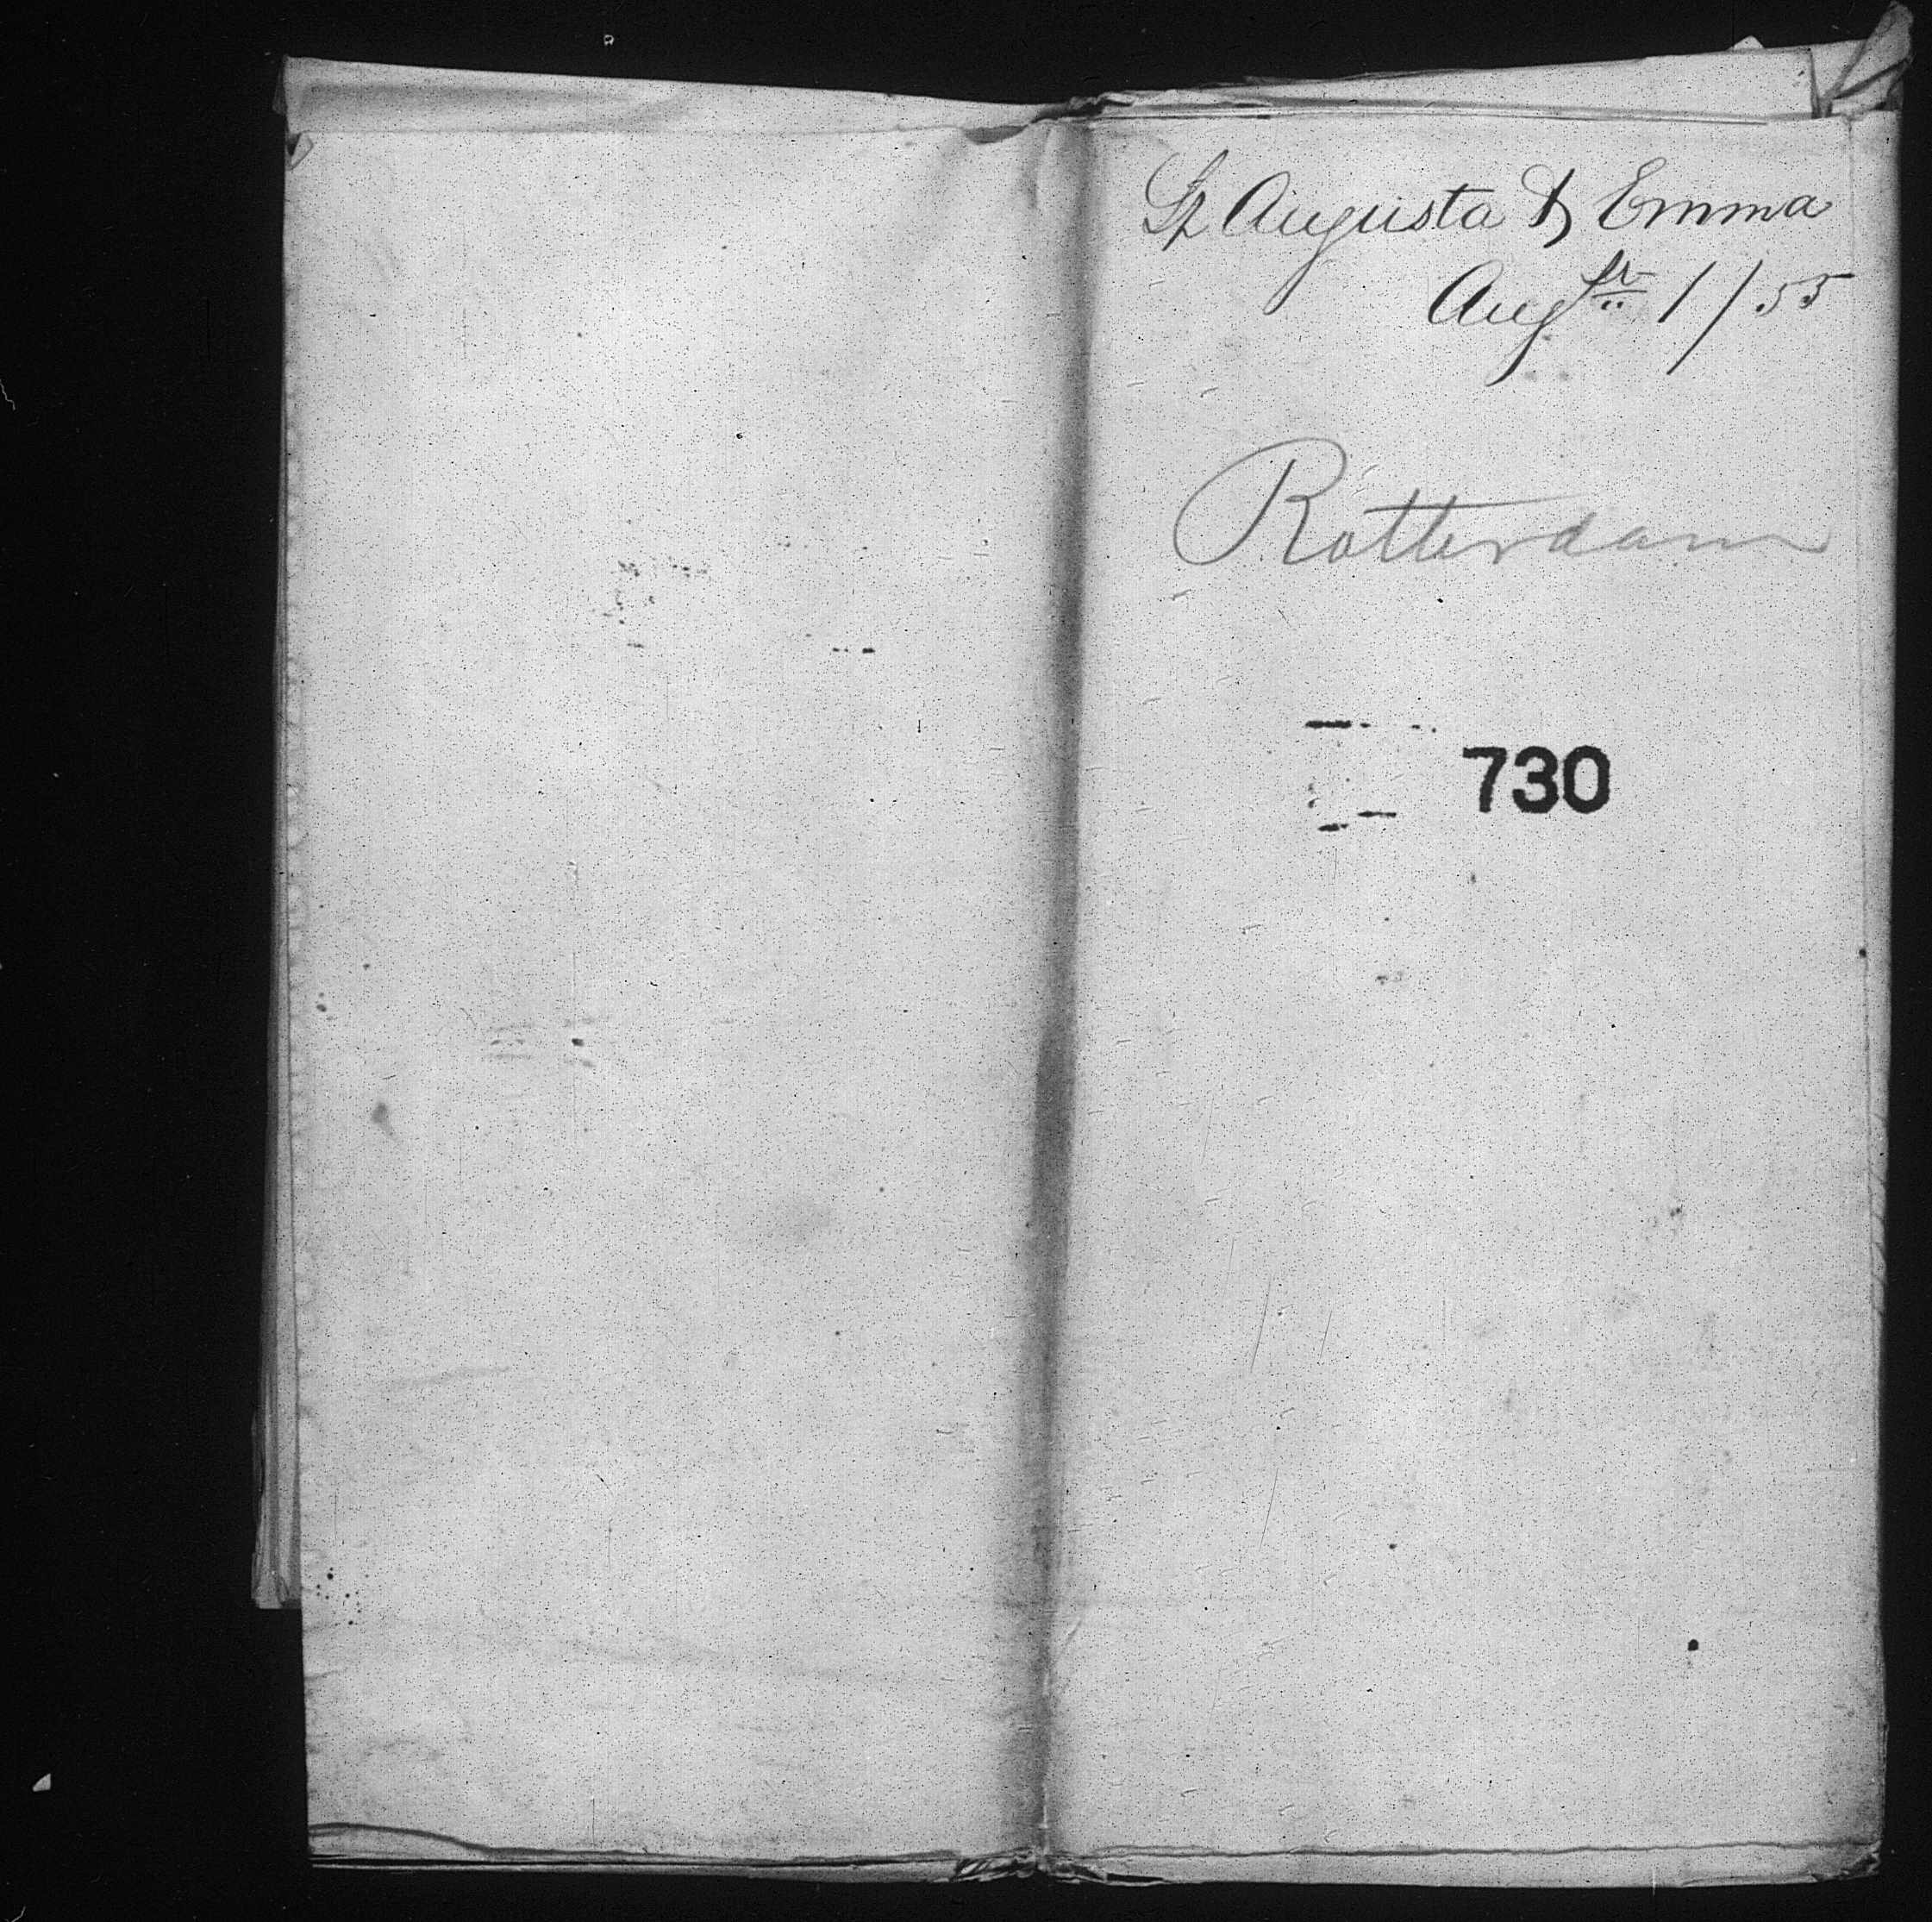 Sp Augusta & Emma
Augst 1/55
Rotterdam
730